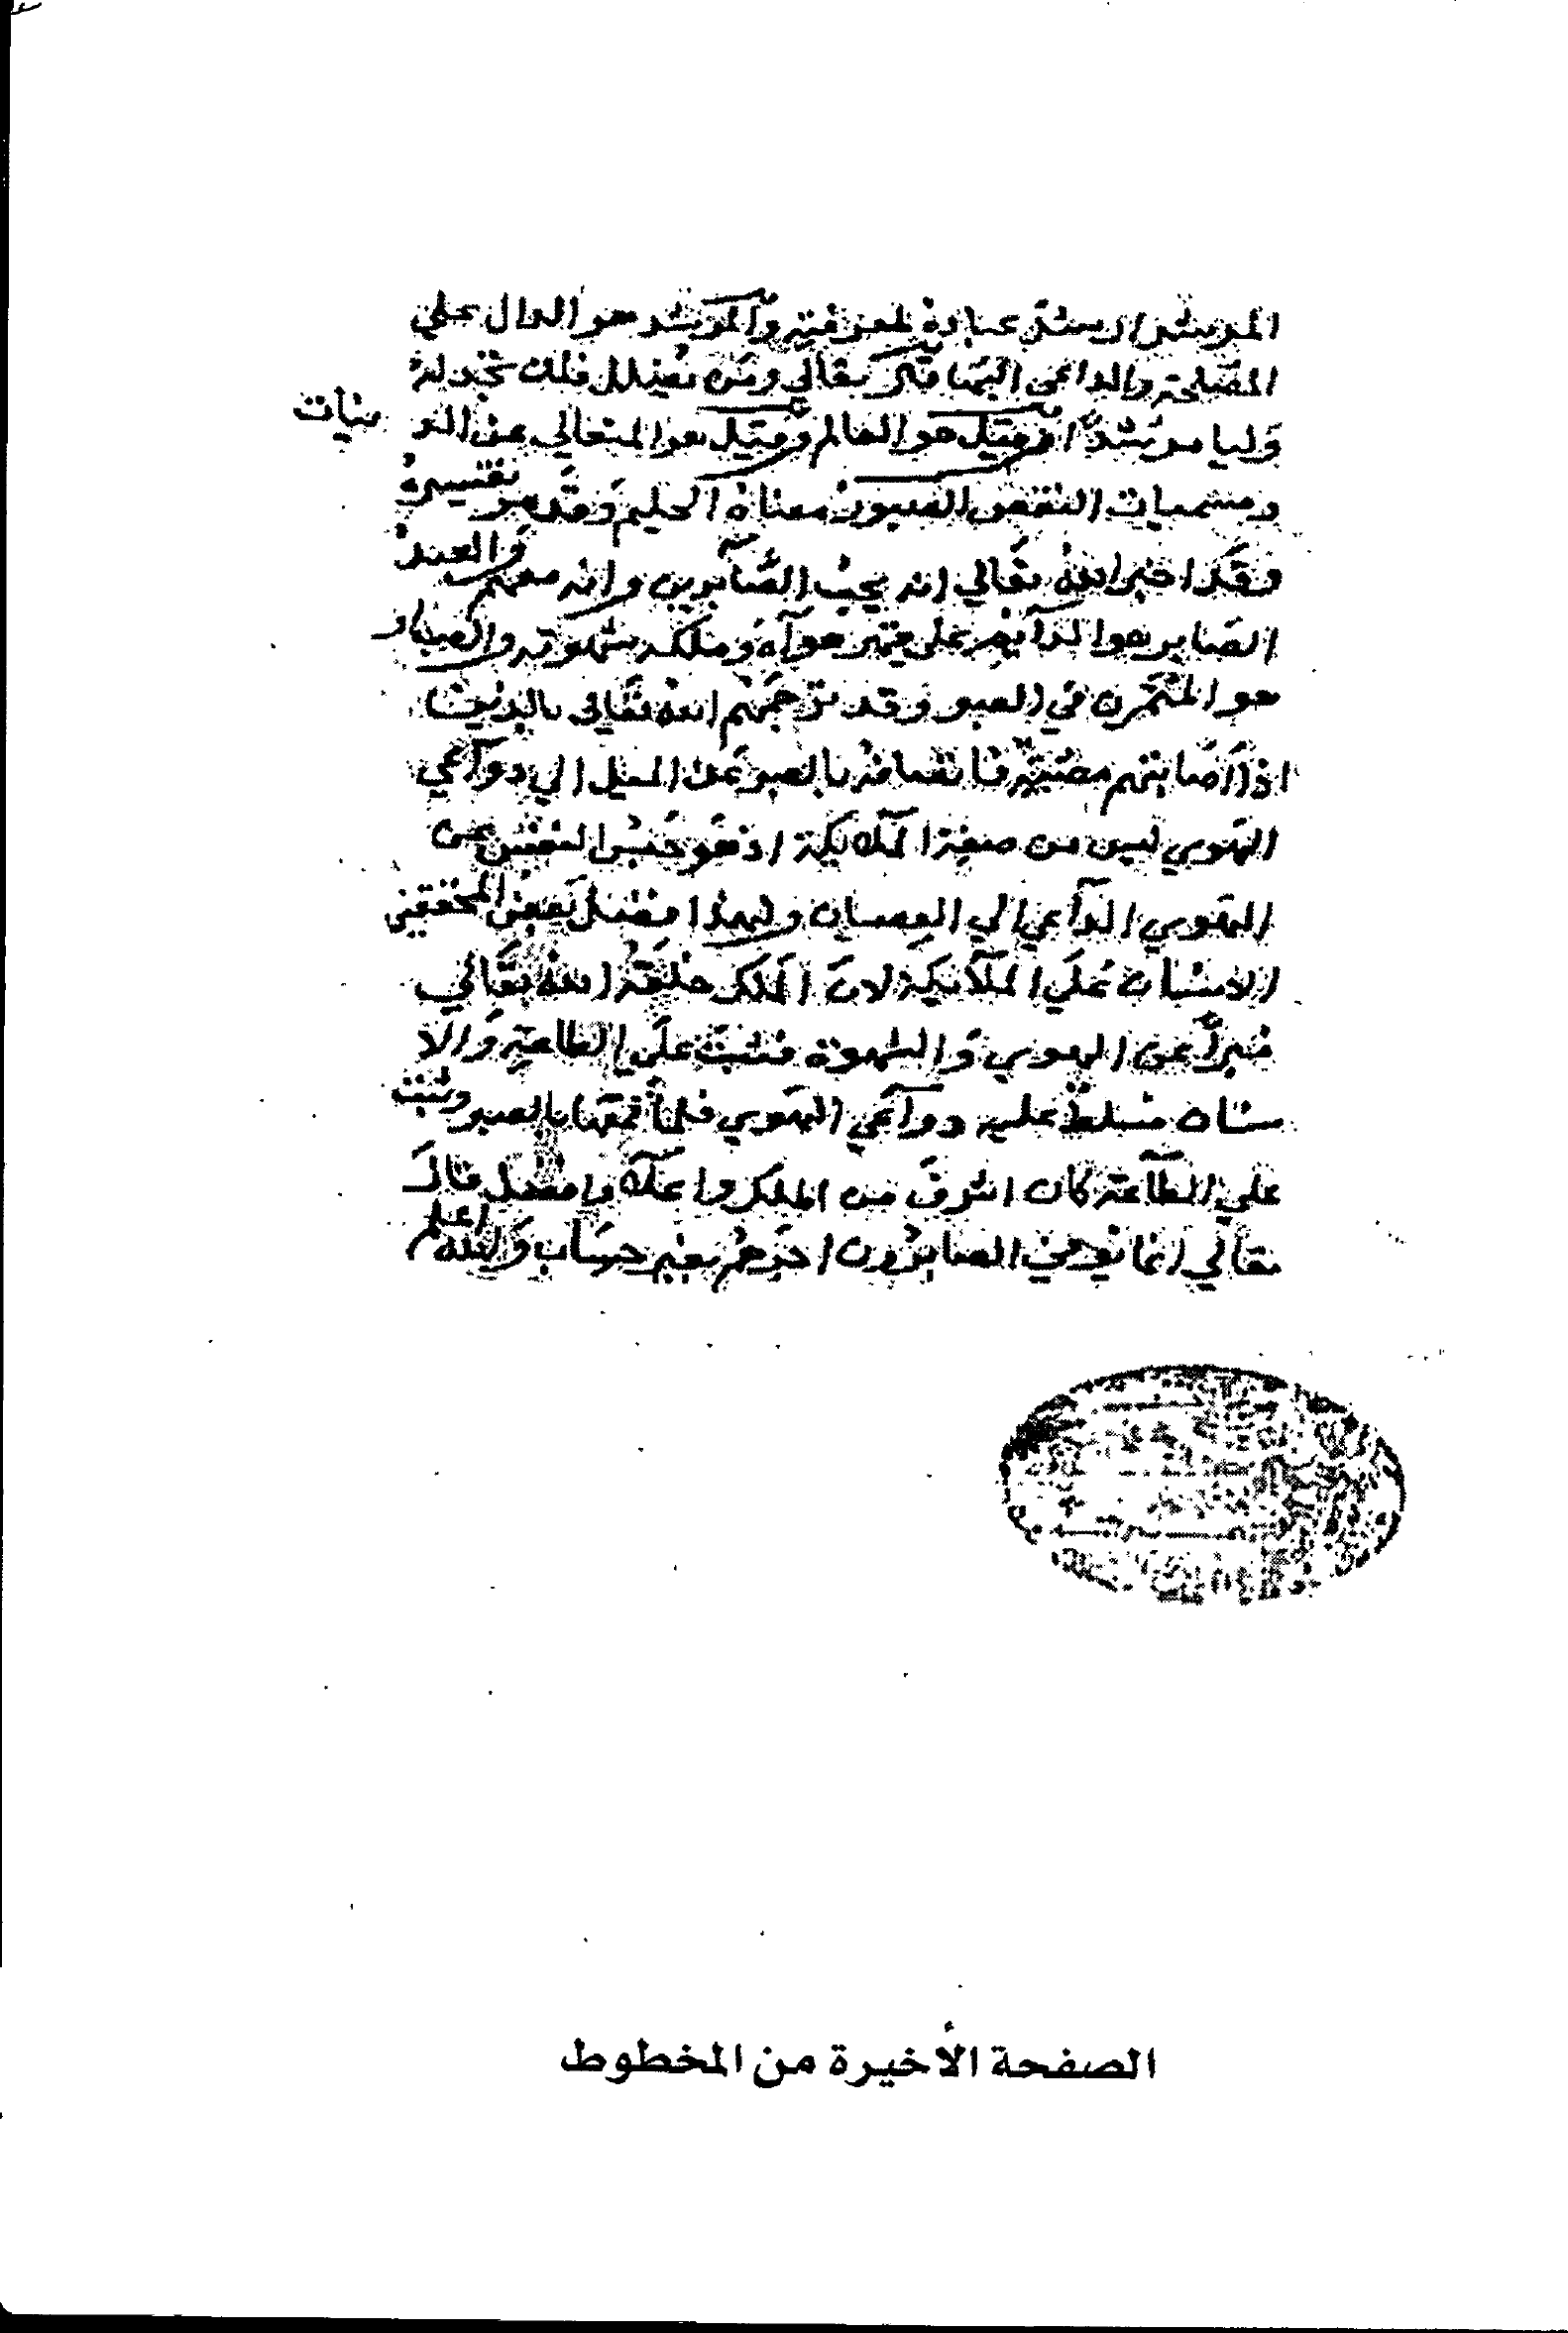 المرشد ارشد عباده لمعرفته والمرشد هو الدال علي
المصلحة والداعي اليها قال تعالي ومن يضلل فلن تجد له
وليا مرشدا وقيل هو العالم وقيل هو المتعالي عن الد نيات
وسمات النقص الصبور معناه الحليم وقد مر تفسيره
وقد اخبر الله تعالي انه يحب الصابرين وانه معهم والعبد
الصابر هو الدآيم علي قهر هوآه وملكه شهوته والصبار
هو المتمرن في الصبر وقد ترجمهم الله تعالي بالذين
اذا اصابتهم مصيبة فاتصافه بالصبر عن الميل الي دوآعي
الهوي ليس من صفة الملايكة اذ هو حبس النفس عن
الهوي الدآعي الي العصيان ولهذا فضل بعض المحققين
الانسان علي الملآيكة لان الملك خلقه الله تعالي
مبرأ عن الهوي والشهوة فثبت علي الطاعة والا
نسان مسلط عليه دوآعي الهوي فلما قمعها بالصبر وثبت
علي الطآعة كان اشرف من الملك واعلاه وافضل قال
تعالي انما يوفي الصابرون اجرهم بغير حساب والله اعلم
الصفحة الأخيرة من المخطوط